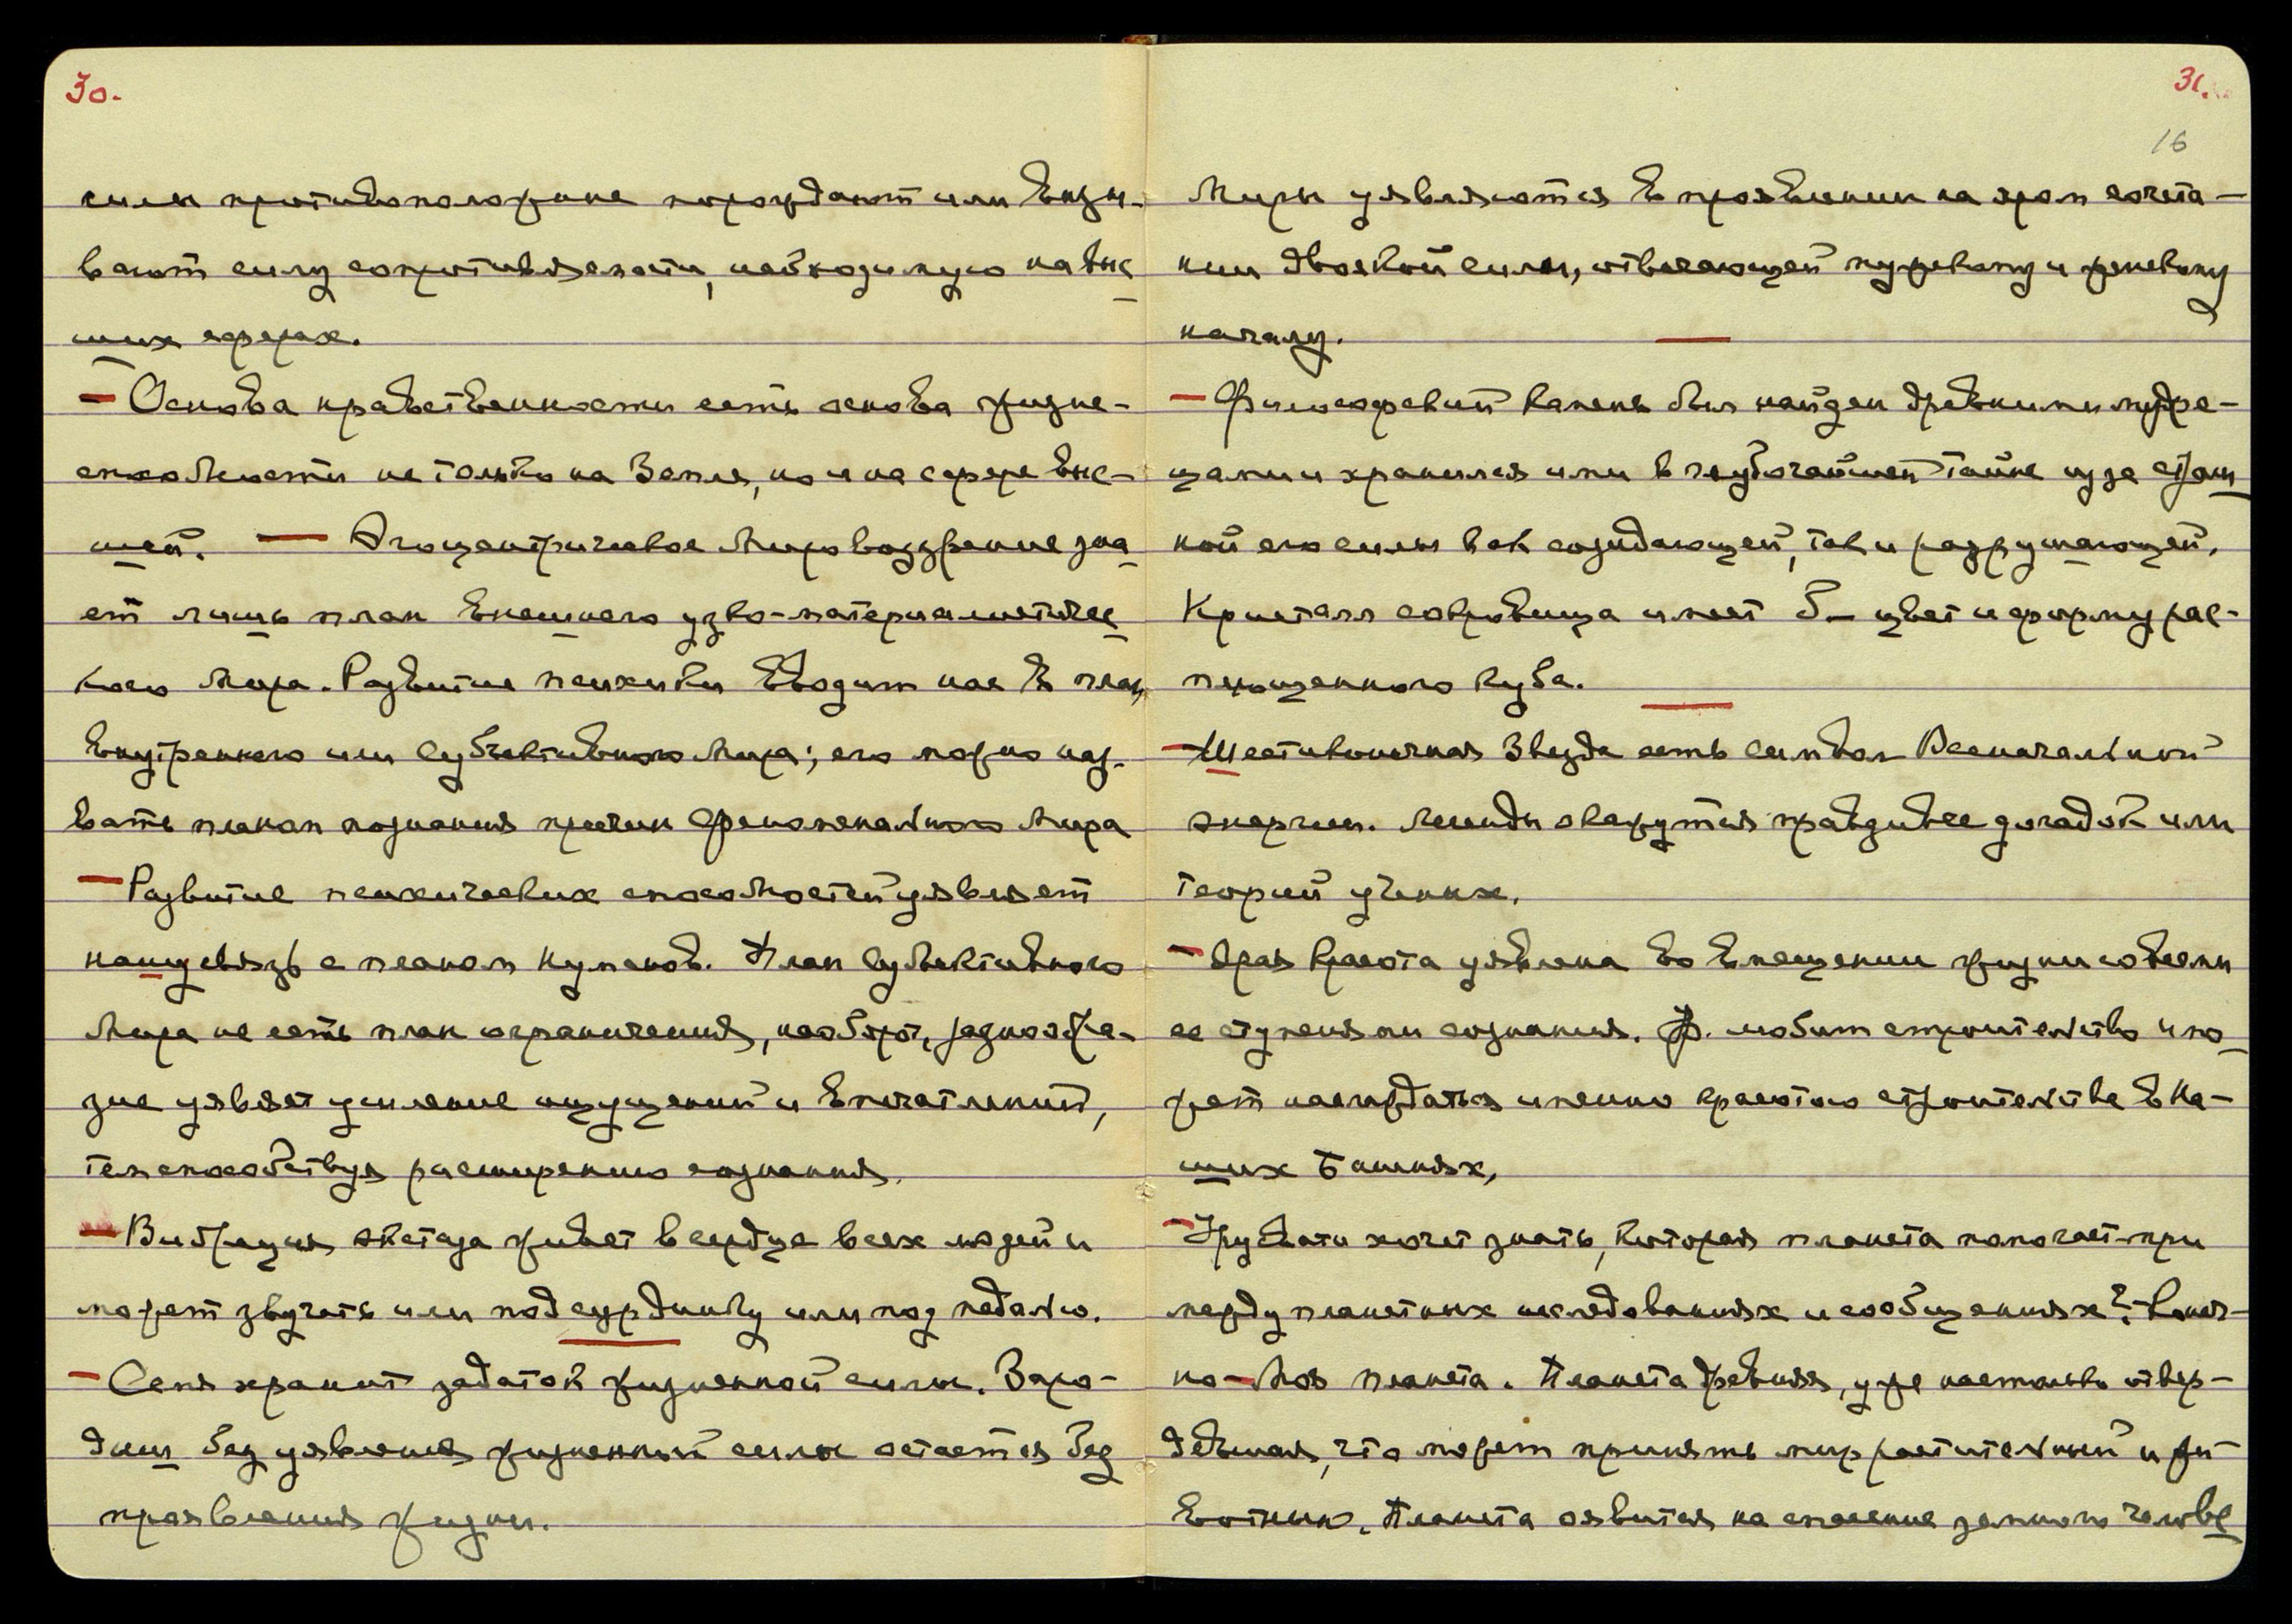 30.
силы противоположные порождают или вызы-
вают силу сопротивляемости, необходимую на выс
ших сферах.
— Основа нравственности есть основа жизне-
способности не только на Земле, но и на сфере выс-
шей. — Эгоцентрическое Мировоззрение зна
ет лишь план внешнего узко-материалистичес
кого Мира. Развитие психики вводит нас в план
внутреннего или субъективного Мира; его можно наз-
вать планом познания причин феноменального Мира
— Развитие психических способностей уявляет
нашу связь с планом нуменов. План субъективного
Мира не есть план ограничения, наоборот, разнообра-
зие уявляет усиление ощущений и впечатлений,
тем способствуя расширению сознания.
— Вибрация экстаза живет в сердце всех людей и
может звучать или под сурдинку или под педалью.
— Семя хранит задаток жизненной силы. Заро-
дыш без уявления жизненной силы остается без
проявления жизни.
31.
16
Миры уявляются в проявлении на яром сочета-
нии двоякой силы, отвечающей мужскому и женскому
началу.
— Философский камень был найден древними мудре-
цами и хранился ими в глубочайшей тайне из за страш
ной его силы как созидающей, так и разрушающей.
Кристалл сокровища имеет б- цвет и форму рас-
плющенного куба.
— Шестиконечная Звезда есть символ Всеначальной
энергии. Легенды окажутся правдивее догадок или
теорий ученых.
— Ярая красота уявлена во вмещении жизни со всеми
ее ступенями сознания. Ф. любит строительство и мо
жет наслаждаться именно красотою строительства в На-
ших Башнях,
— Урусвати хочет знать, которая планета помогает при
междупланетных исследованиях и сообщениях? Конеч-
но — Моя планета. Планета древняя, уже настолько отвер-
девшая, что может принять мир растительный и жи
вотных. Планета явится на спасение земного челове